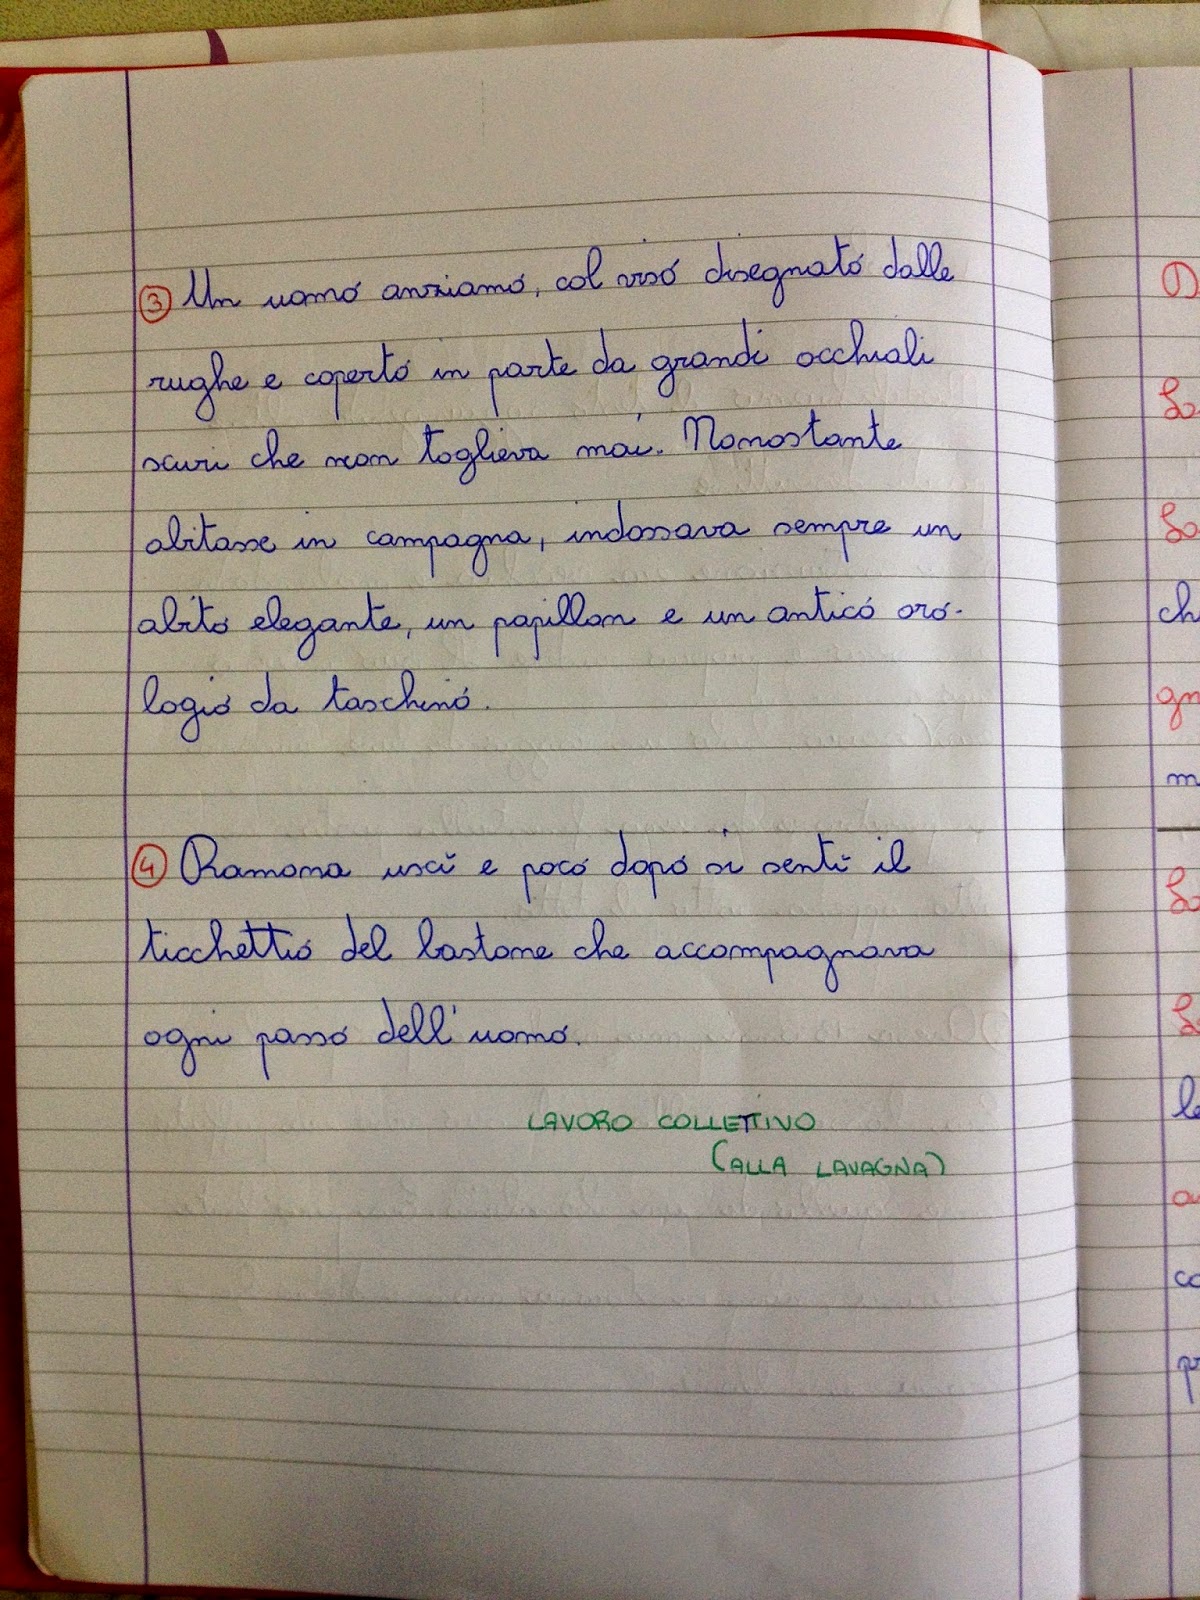 ③ Un uomo anziano, col viso disegnato dalle
rughe e coperto in parte da grandi occhiali
scuri che non toglieva mai. Nonostante
abitasse in campagna, indossava sempre un
abito elegante, un papillon e un antico oro-
logio da taschino.
④ Ramona uscì e poco dopo si sentì il
ticchettio del bastone che accompagnava
ogni passo dell'uomo.
LAVORO COLLETTIVO
(ALLA LAVAGNA)
ch
gn
m
le
co
pr